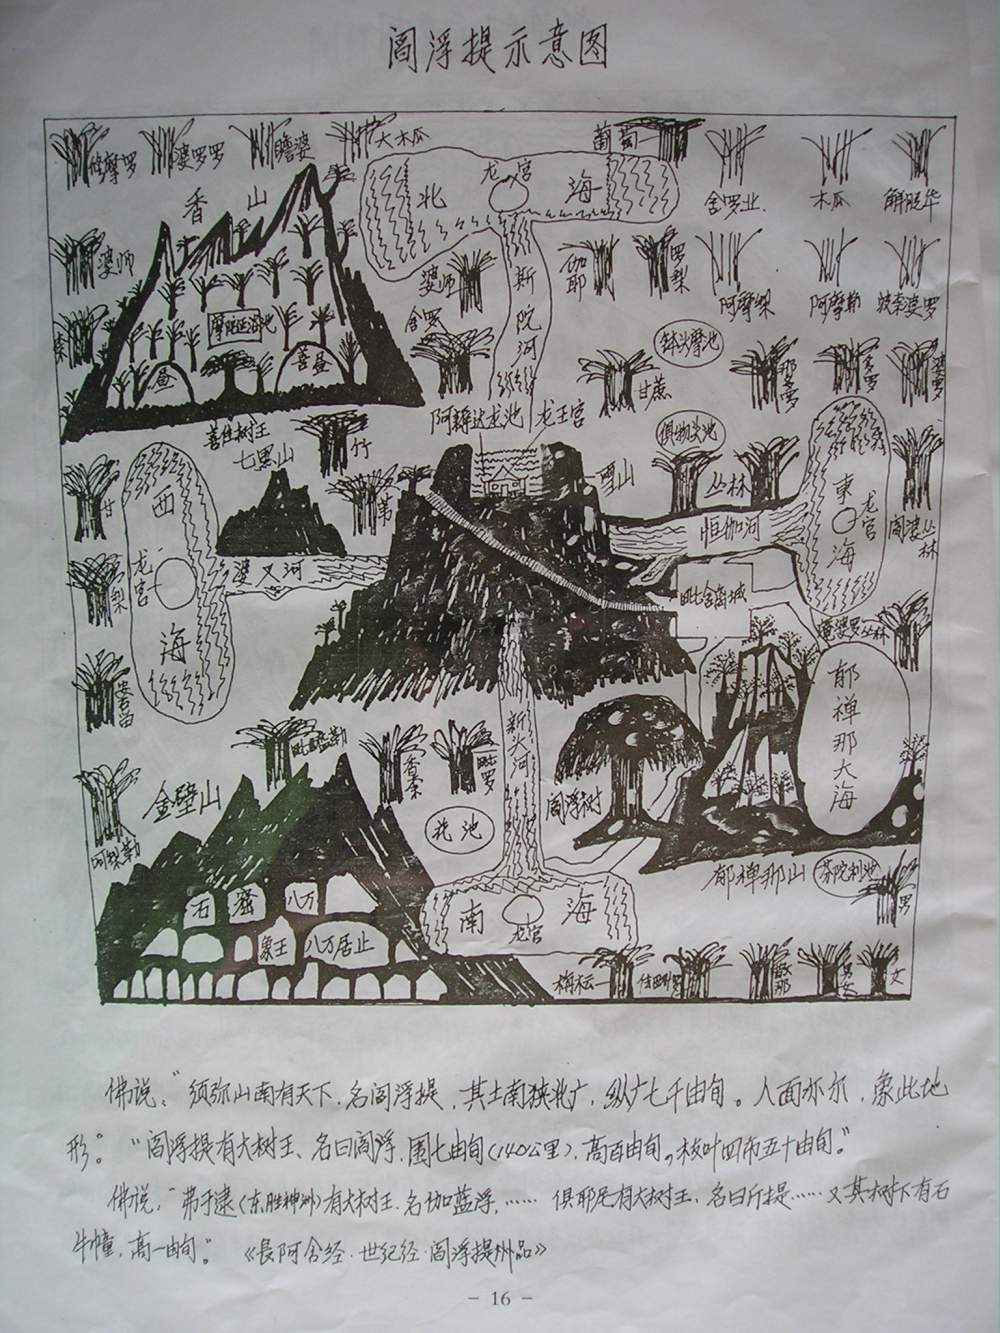 阎浮提示意图
婆罗罗
瞻婆
大木瓜
葡萄
北
龙宫
海
舍罗业
木瓜
解脱华
香山
婆师
婆师
斯陀河
伽耶
罗梨
阿摩梨
阿摩勒
舍罗
钵头摩池
善昼
昼
甘蔗
那多罗
多罗
阿耨达龙池
龙王宫
善住树王
竹
俱物头池
七黑山
雪山
丛林
甘
西
龙宫
海
東
龙宫
海
恒伽河
阎浪丛林
婆叉河
毗舍离城
菴婆罗丛林
郁禅那大海
新头河
香奈
毗罗
金壁山
阎浮树
花池
呵梨勒
郁禅那山
芬陀利池
男
石
窟
八万
象王
八万居止
南
龙宫
海
男女
女
佛说："须弥山南有天下,名阎浮提,其土南狭北广,纵广七千由旬。人面亦尔,象此地
形。""阎浮提有大树王、名曰阎浮,围七由旬(140公里),高百由旬,枝叶四布五十由旬。"
佛说："弗于逮(东胜神洲)有大树王,名伽蓝浮,…… 俱耶尼有大树王,名曰斤提……又其树下有石
牛幢,高一由旬。" 《長阿含经·世纪经·阎浮提州品》
- 16 -